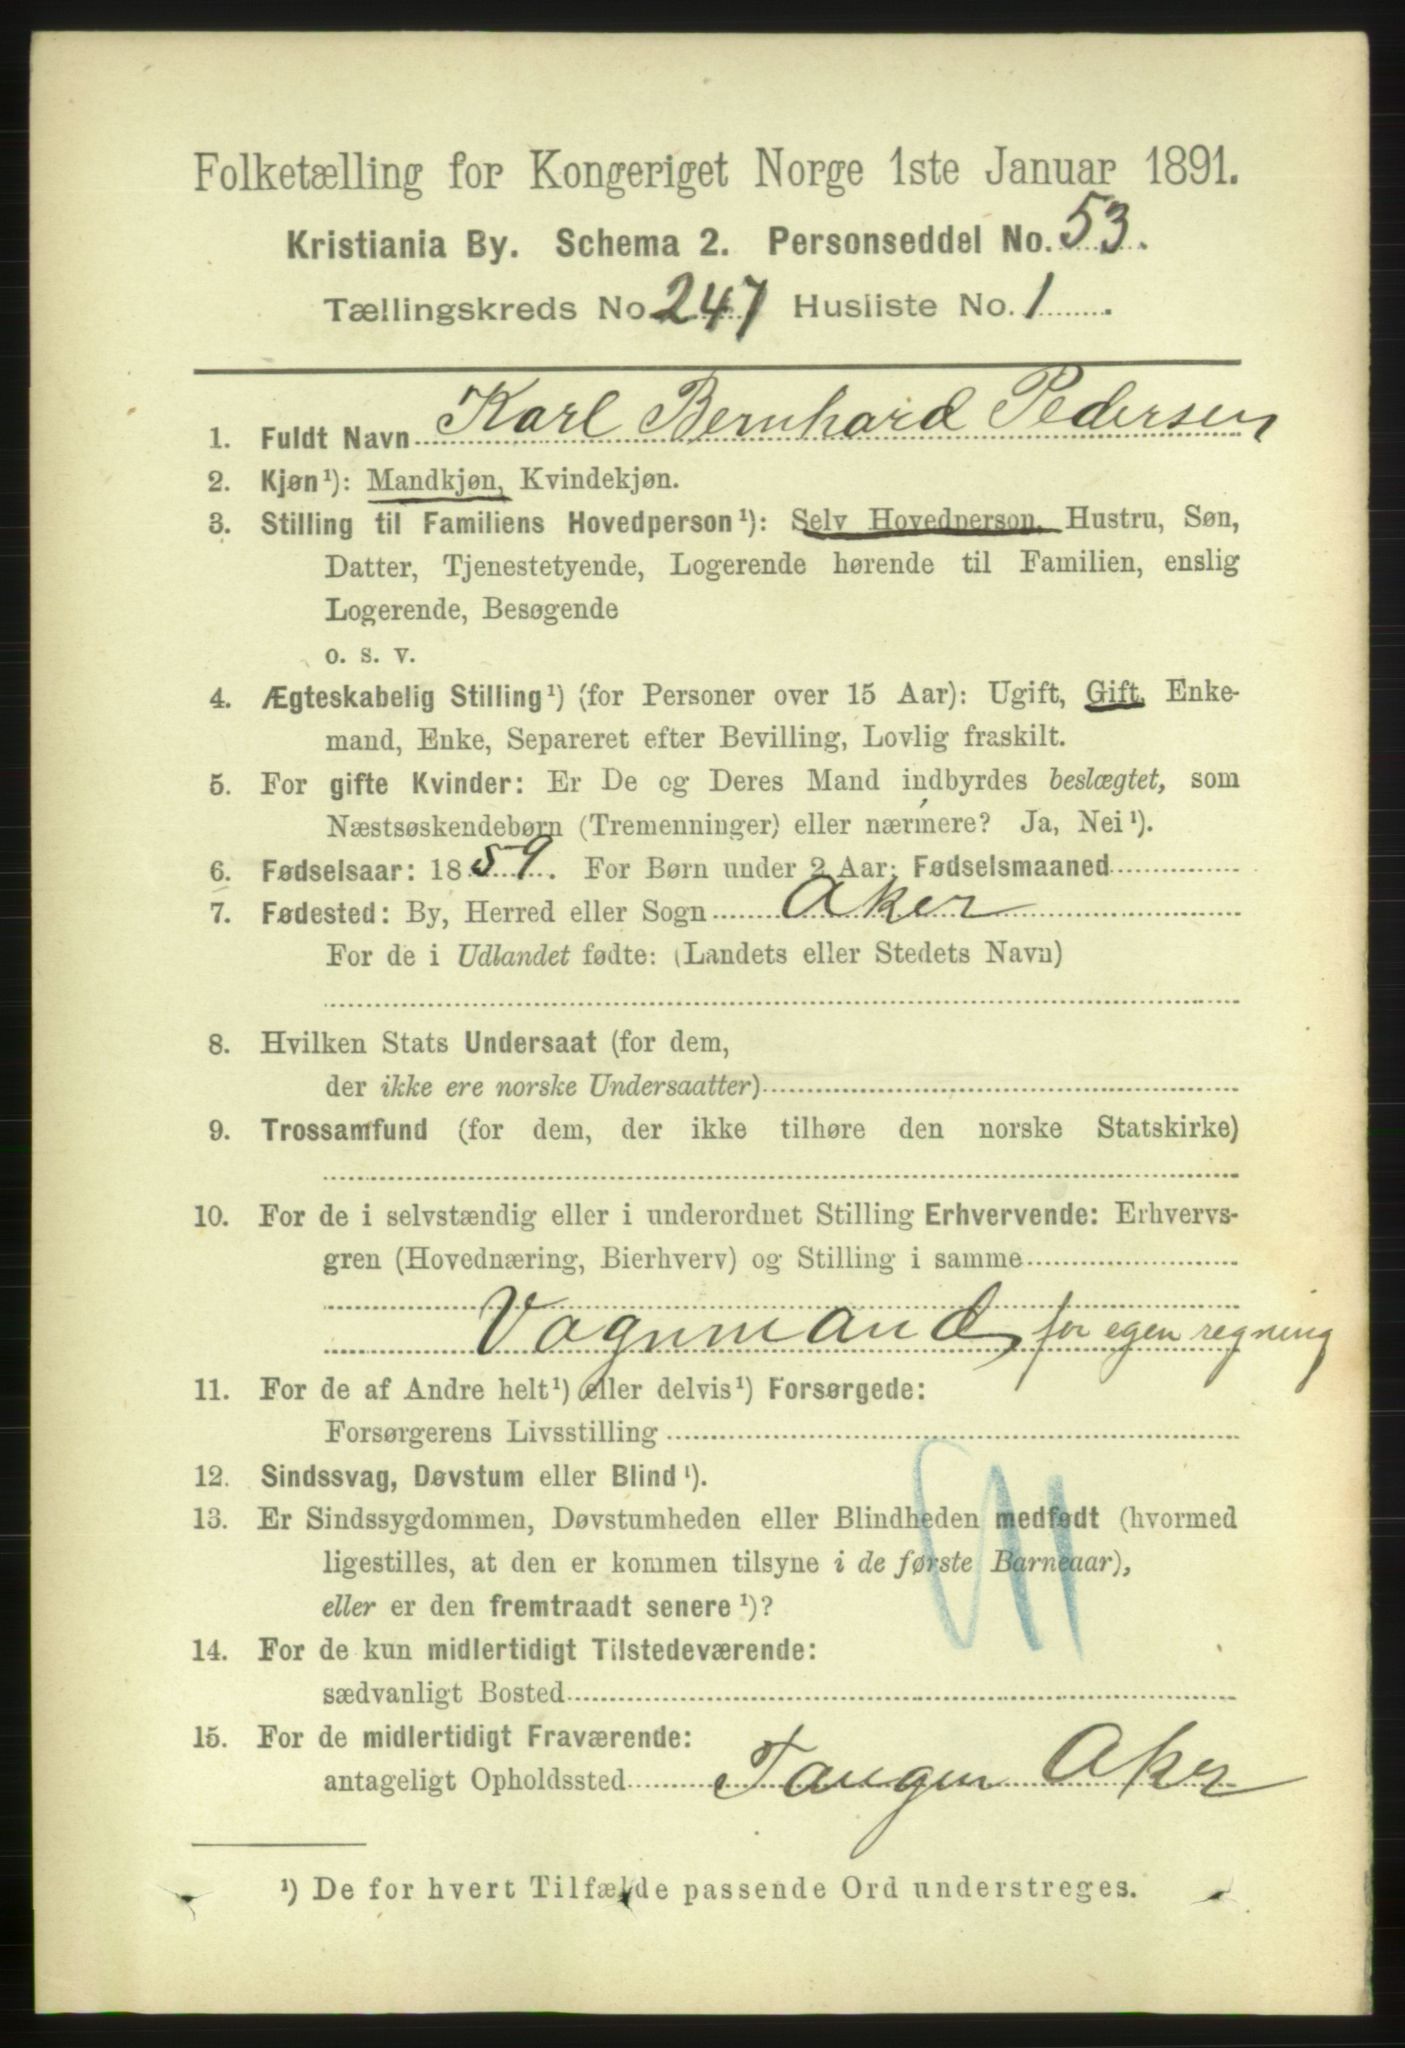 Folketælling for Kongeriget Norge 1ste Januar 1891.
Kristiania By. Schema 2. Personseddel No. 53.
Tællingskreds No 247 Husliste No. 1.
1. Fuldt Navn Karl Bernhard Pedersen
2. Kjøn¹): Mandkjøn, Kvindekjøn.
3. Stilling til Familiens Hovedperson¹): Selv Hovedperson, Hustru, Søn,
Datter, Tjenestetyende, Logerende hørende til Familien, enslig
Logerende, Besøgende
o. s. v.
4. Ægteskabelig Stilling¹) (for Personer over 15 Aar): Ugift, Gift, Enke-
mand, Enke, Separeret efter Bevilling, Lovlig fraskilt.
5. For gifte Kvinder: Er De og Deres Mand indbyrdes beslægtet, som
Næstsøskendebørn (Tremenninger) eller nærmere? Ja, Nei¹).
6. Fødselsaar: 1859. For Børn under 2 Aar: Fødselsmaaned
7. Fødested: By, Herred eller Sogn Aker
For de i Udlandet fødte: (Landets eller Stedets Navn)
8. Hvilken Stats Undersaat (for dem,
der ikke ere norske Undersaatter)
9. Trossamfund (for dem, der ikke tilhøre den norske Statskirke)
10. For de i selvstændig eller i underordnet Stilling Erhvervende: Erhvervs-
gren (Hovednæring, Bierhverv) og Stilling i samme
Vognmand, for egen regning
11. For de af Andre helt¹) eller delvis¹) Forsørgede:
Forsørgerens Livsstilling
12. Sindssvag, Døvstum eller Blind¹).
13. Er Sindssygdommen, Døvstumheden eller Blindheden medfødt (hvormed
ligestilles, at den er kommen tilsyne i de første Barneaar),
eller er den fremtraadt senere¹)?
14. For de kun midlertidigt Tilstedeværende:
sædvanligt Bosted
15. For de midlertidigt Fraværende:
antageligt Opholdssted Tangen Aker
¹) De for hvert Tilfælde passende Ord understreges.